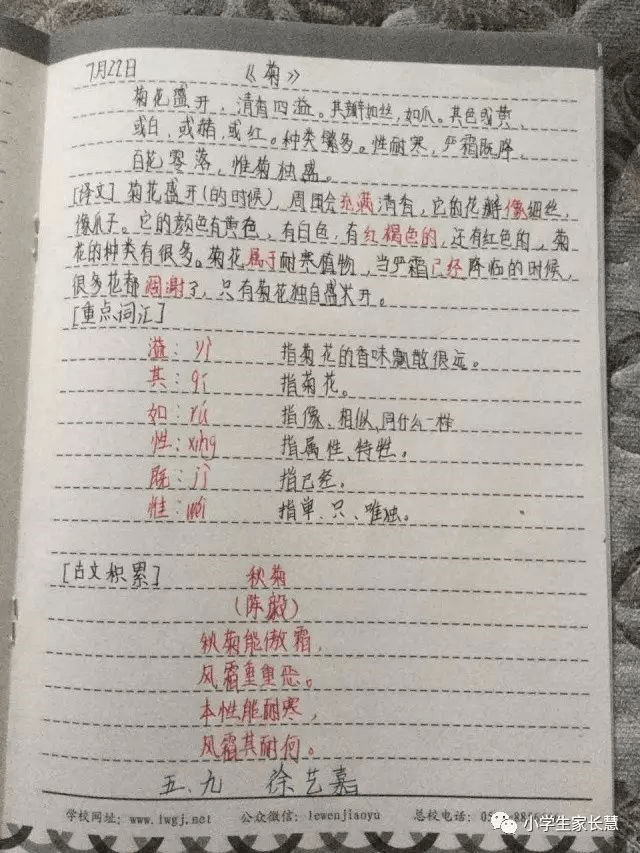 7月22日 《菊》
菊花盛开，清香四溢。其瓣如丝，如爪。其色或黄、
或白，或赭，或红。种类繁多。性耐寒，严霜既降，
百花零落，惟菊独盛。
[译文]菊花盛开(的时候)，周围会充满清香，它的花瓣像细丝，
像爪子。它的颜色有黄色，有白色，有红褐色的，还有红色的，菊
花的种类有很多。菊花属于耐寒植物，当严霜已经降临的时候，
很多花都凋谢了，只有菊花独自盛开。
[重点词汇]
溢：yì 指菊花的香味飘散很远。
其：qí 指菊花。
如：rú 指像、相似、同什么一样
性：xìng 指属性、特性。
既：jì 指已经。
惟：wéi 指单、只、唯独。
[古文积累] 秋菊
(陈毅)
秋菊能傲霜，
风霜重重恶。
本性能耐寒，
风霜其耐何。
五、九 徐艺嘉
学校网址：www.lwgj.net 公众微信：lewenjiaoyu 总校电话：05
小学生家长慧